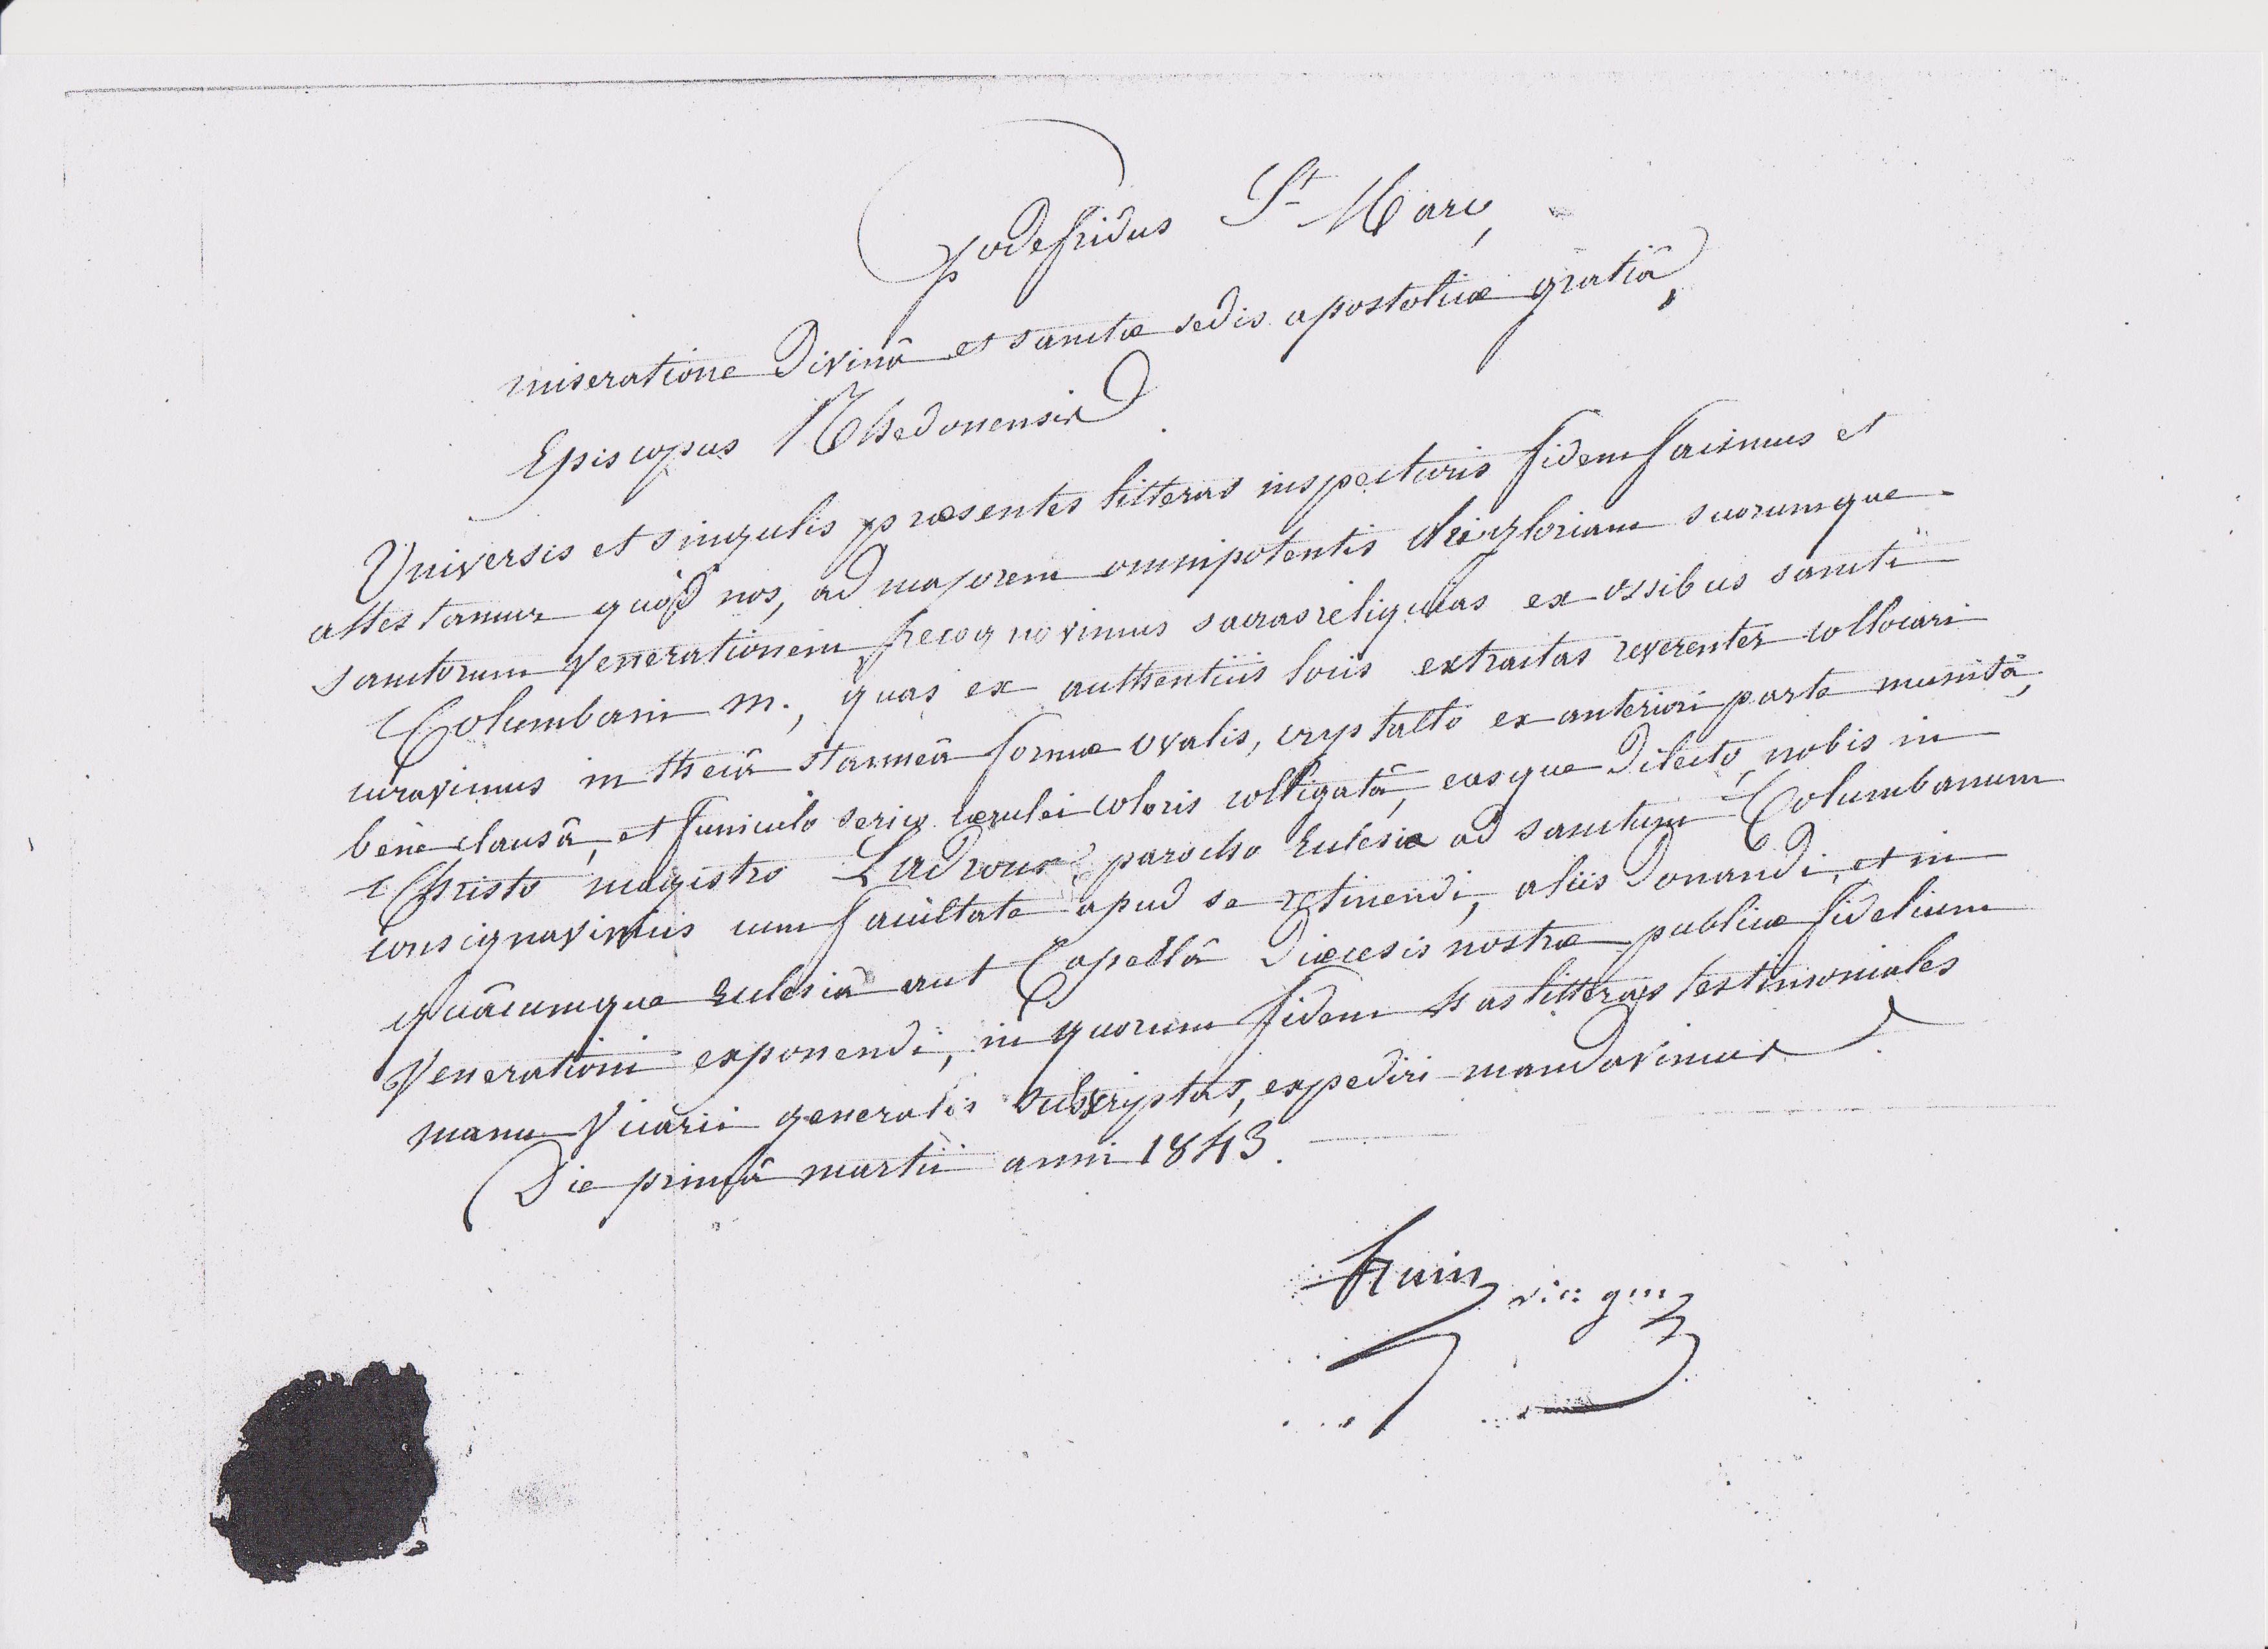 Godefridus St Marc,
miseratione Divinâ et sanctæ sedis apostolicæ gratiâ,
Episcopus Rhedonensis
Universis et singulis præsentes litteras inspecturis fidem facimus et
attestamur quòd nos, ad majorem omnipotentis dei gloriam suorumque
sanctorum Venerationem, recognovimus sacras reliquias ex ossibus sancti
Columbani m., quas ex authenticis locis extractas reverenter collocari
curavimus in thecâ stanneâ formæ ovalis, crystallo ex anteriori parte munitâ,
benè clausâ, et funiculo serico cærulei coloris colligatâ, easque Dilecto nobis in
Christo magistro parocho Ecclesiæ ad sanctum Columbanum
consignavimus cum facultate apud se retinendi, aliis Donandi, et in
quâcumque Ecclesiâ aut Capellâ Diœcesis nostræ publicæ fidelium
Venerationi exponendi, in quorum fidem has litteras testimoniales
manu Vicarii generalis subscriptas, expediri mandavimus
Die primâ martii anni 1843.
vic: gen